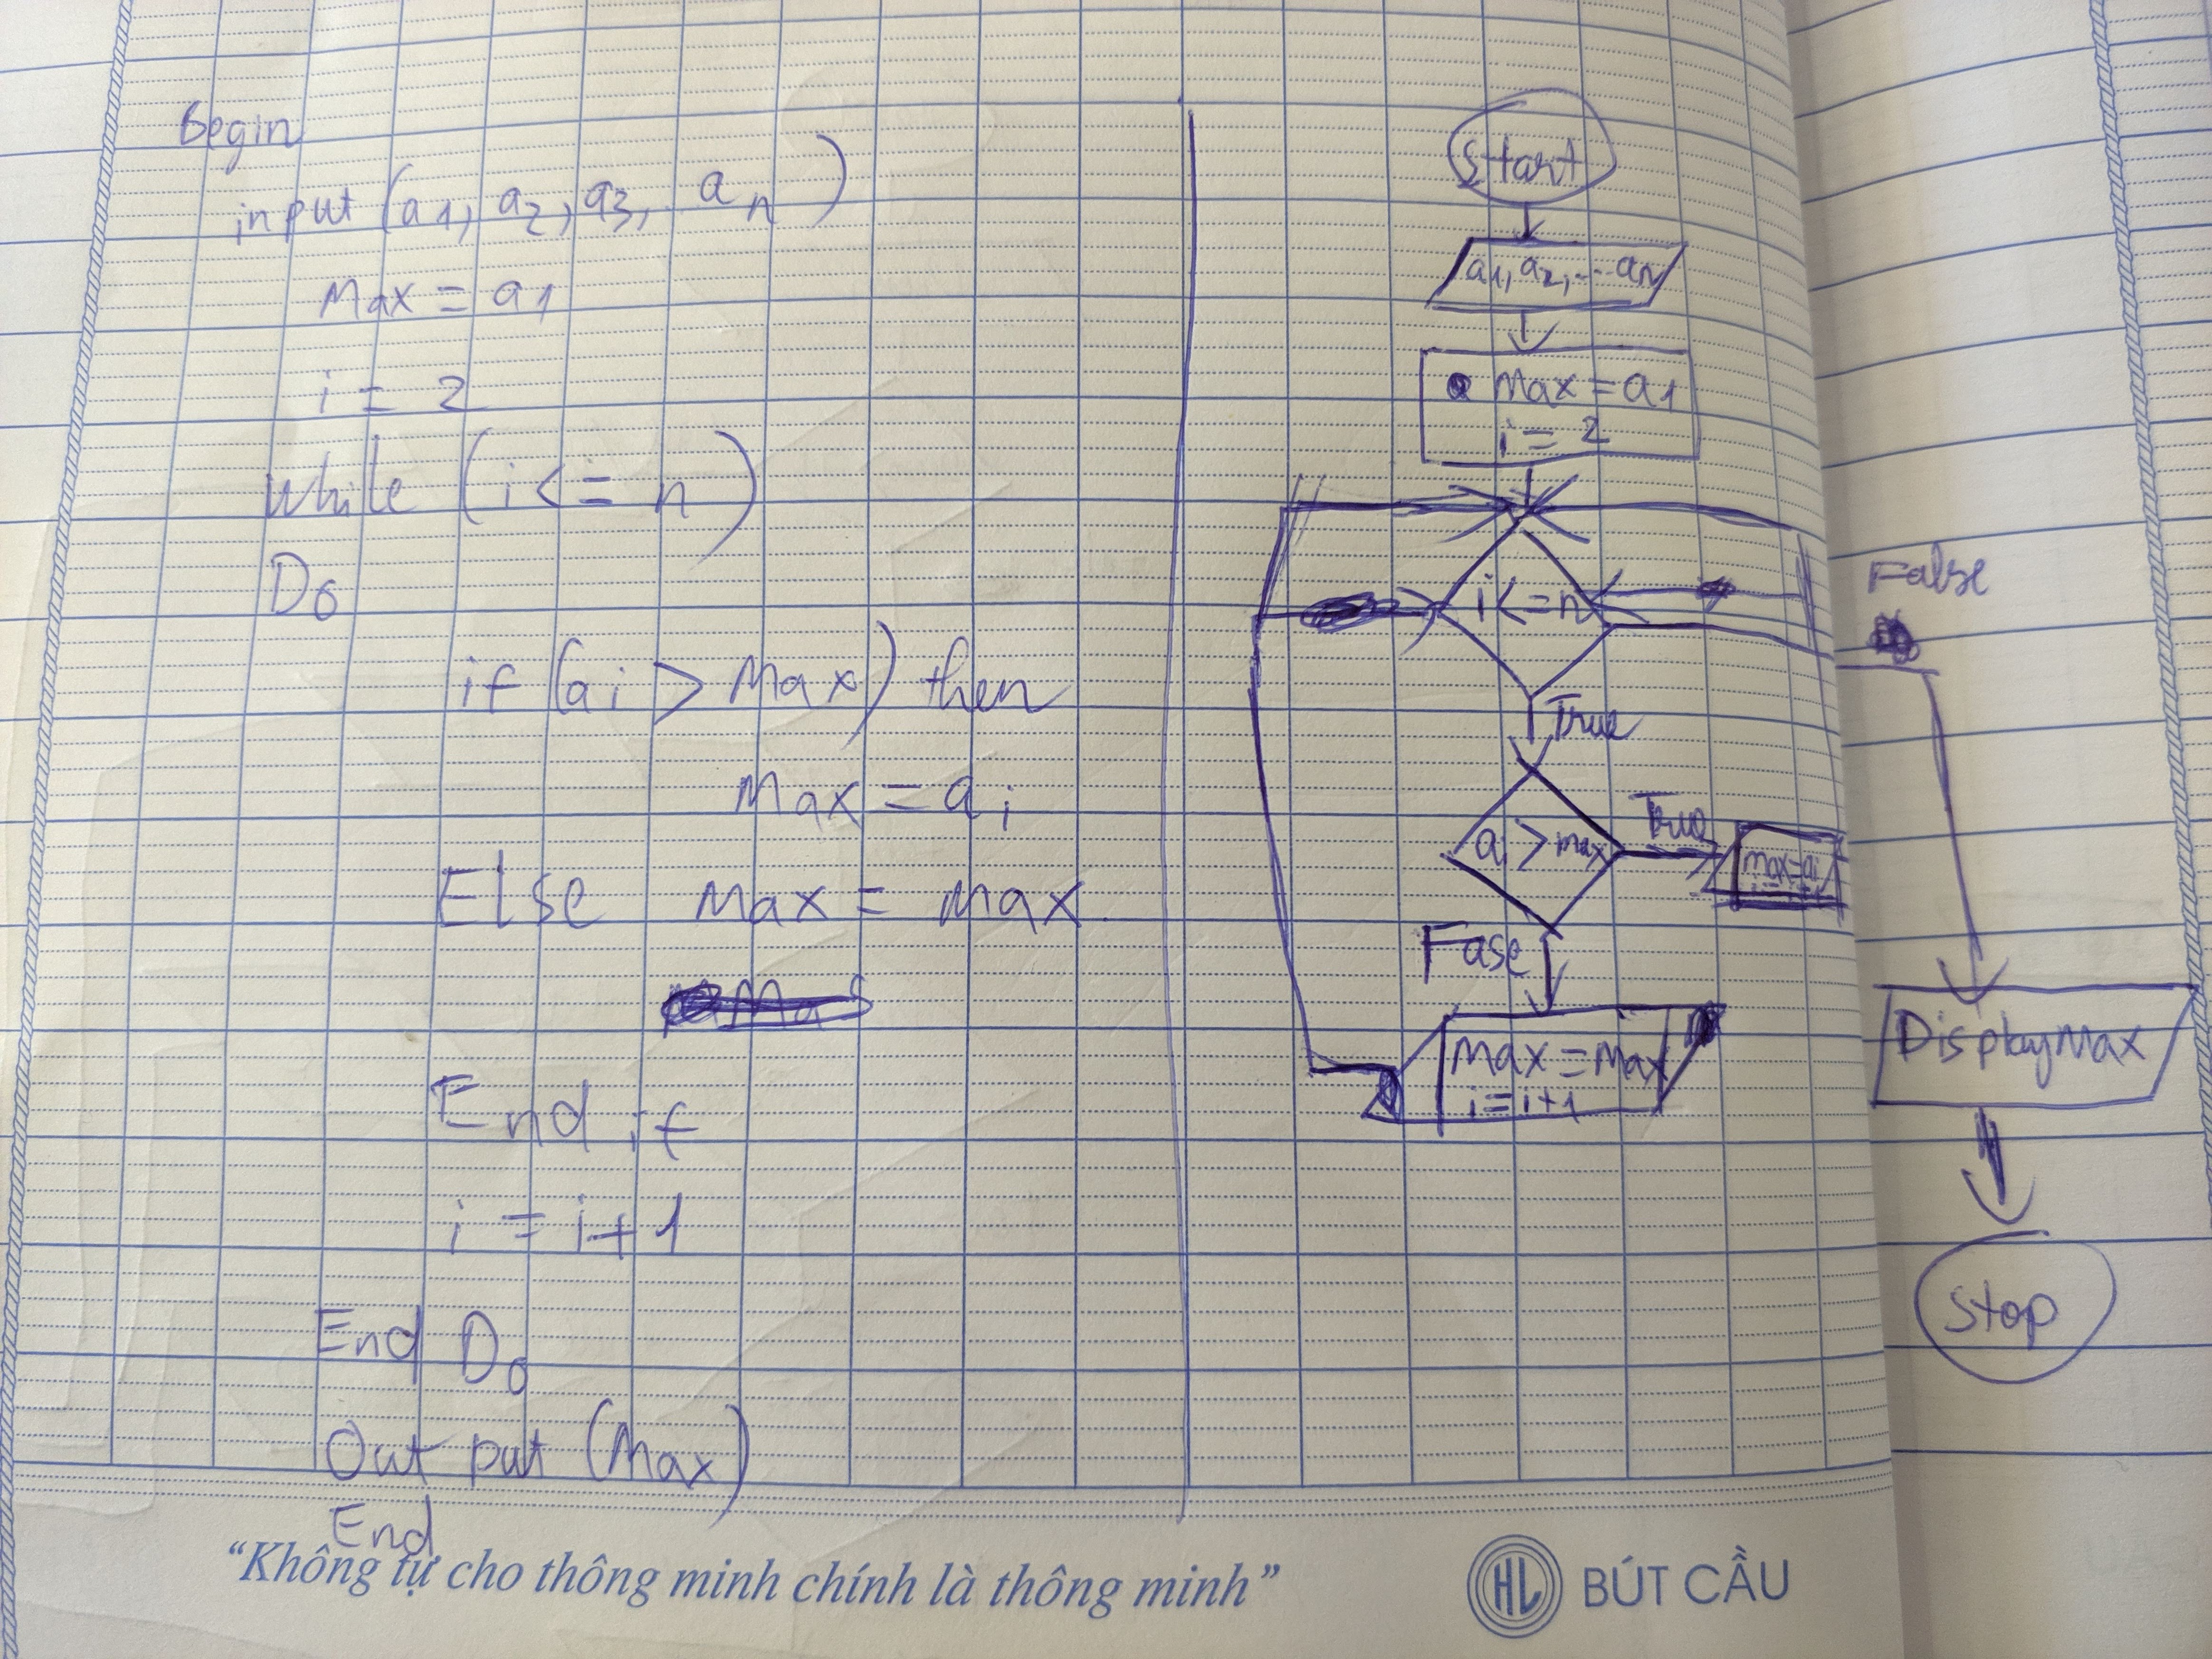 Begin
input (a1, a2, a3, .. an)
Max = a1
i = 2
While (i <= n)
Do
if (ai > Max) then
Max = ai
Else Max = Max
End if
i = i+1
End Do
Out put (Max)
End
Start
a1, a2, ... an
Max = a1
i = 2
i <= n
False
True
ai > max
True
max = ai
i = i+1
Fase
Max = Max
i = i+1
Display Max
Stop
“Không tự cho thông minh chính là thông minh”
HL BÚT CẦU